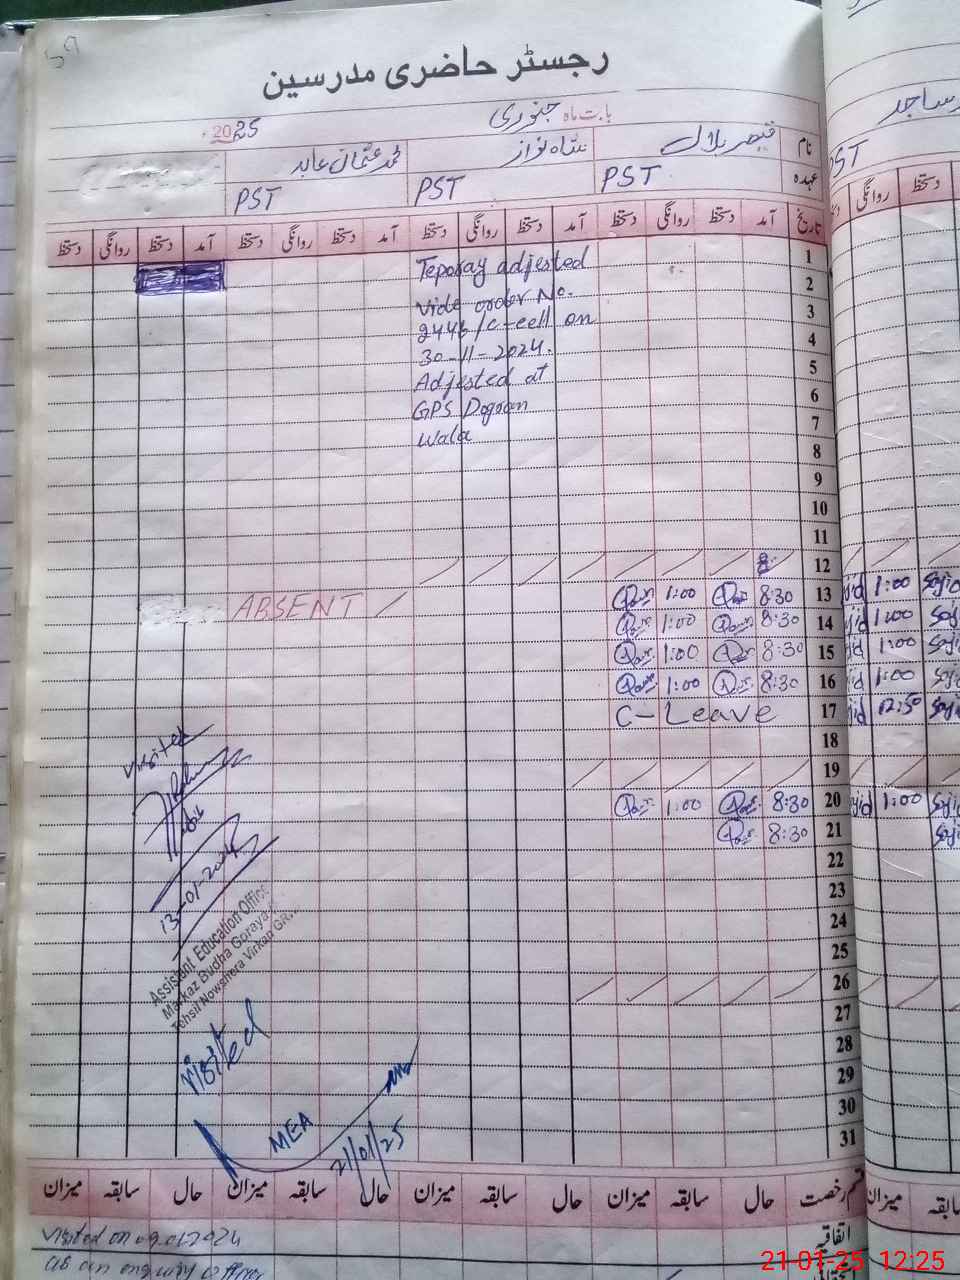 رجسٹر حاضری مدرسین
بابت ماہ جنوری 2025ء
نام قیصر بلال شاہ نواز محمد عثمان عابد
عہدہ PST PST PST
تاریخ آمد دستخط روانگی دستخط آمد دستخط روانگی دستخط آمد دستخط روانگی دستخط آمد دستخط روانگی دستخط
1 Teporay adjested
2 Vide order No.
3 2446/C-cell on
4 30-11-2024.
5 Adjested at
6 GPS Dogran
7 wala
8
9
10
11
12
13 8:30 1:00 ABSENT
14 8:30 1:00
15 8:30 1:00
16 8:30 1:00
17 C-Leave
18
19
20 8:30 1:00
21 8:30
22
23
24
25
26
27
28
29
30
31
visited
13-01-2025
Assistant Education Office
Markaz Budha Goraya
Tehsil Nowshera Virkan GR
visited
MEA
21/01/25
قسم رخصت حال سابقہ میزان حال سابقہ میزان حال سابقہ میزان حال سابقہ میزان
اتفاقیہ
visited on 09.01.2024
as an enquiry officer
ساجد
PST
دستخط روانگی
1:00 Sajid
1:00
1:00
1:00
12:50
1:00
میزان سابقہ
21-01-25 12:25